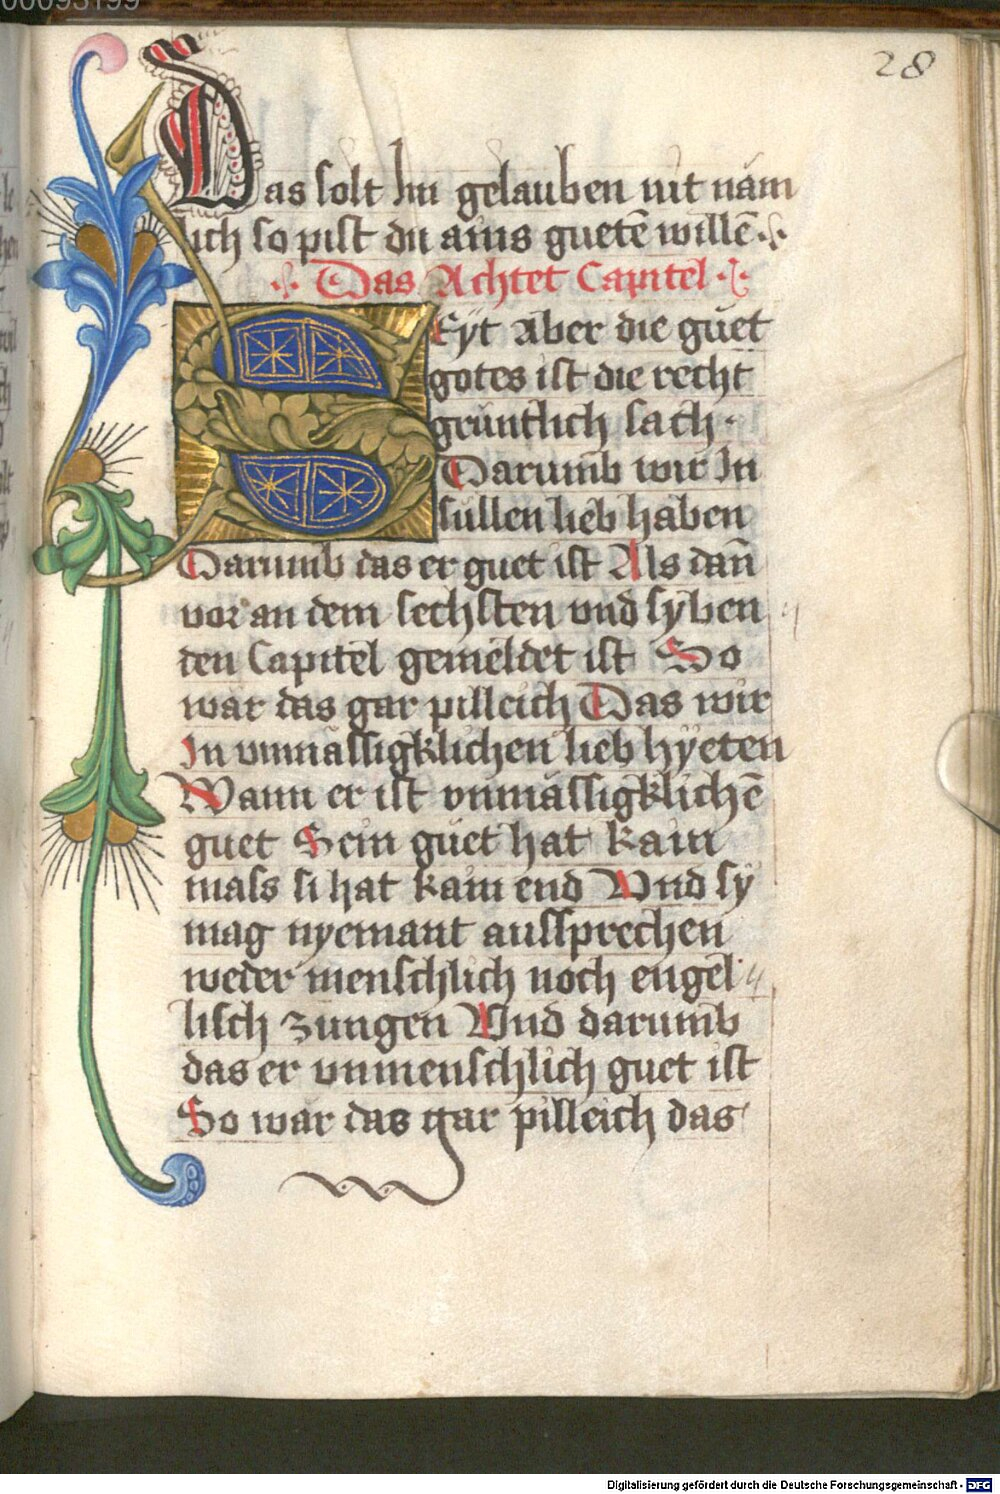 00093199
28
Das solt Im gelauben nit näm
lich so pist du ains guetē willē
Das Achtet Capitel
SEyt Aber die guet
gotes ist die recht
grüntlich sach ·
Darumb wir In
süllen lieb haben
Darumb das er guet ist Als dañ
vor an dem sechsten vnd syben
den Capitel gemeldet ist So
wär das gar pilleich Das wir
In vnmässigklichen lieb hyeten
Wann er ist vnmässigklichē
guet Sein guet hat kain
mass si hat kain end Vnd sy
mag nyemant aussprechen
weder menschlich noch engel
lisch zungen Vnd darumb
das er vnmenschlich guet ist
So wär das gar pilleich das
Digitalisierung gefördert durch die Deutsche Forschungsgemeinschaft - DFG